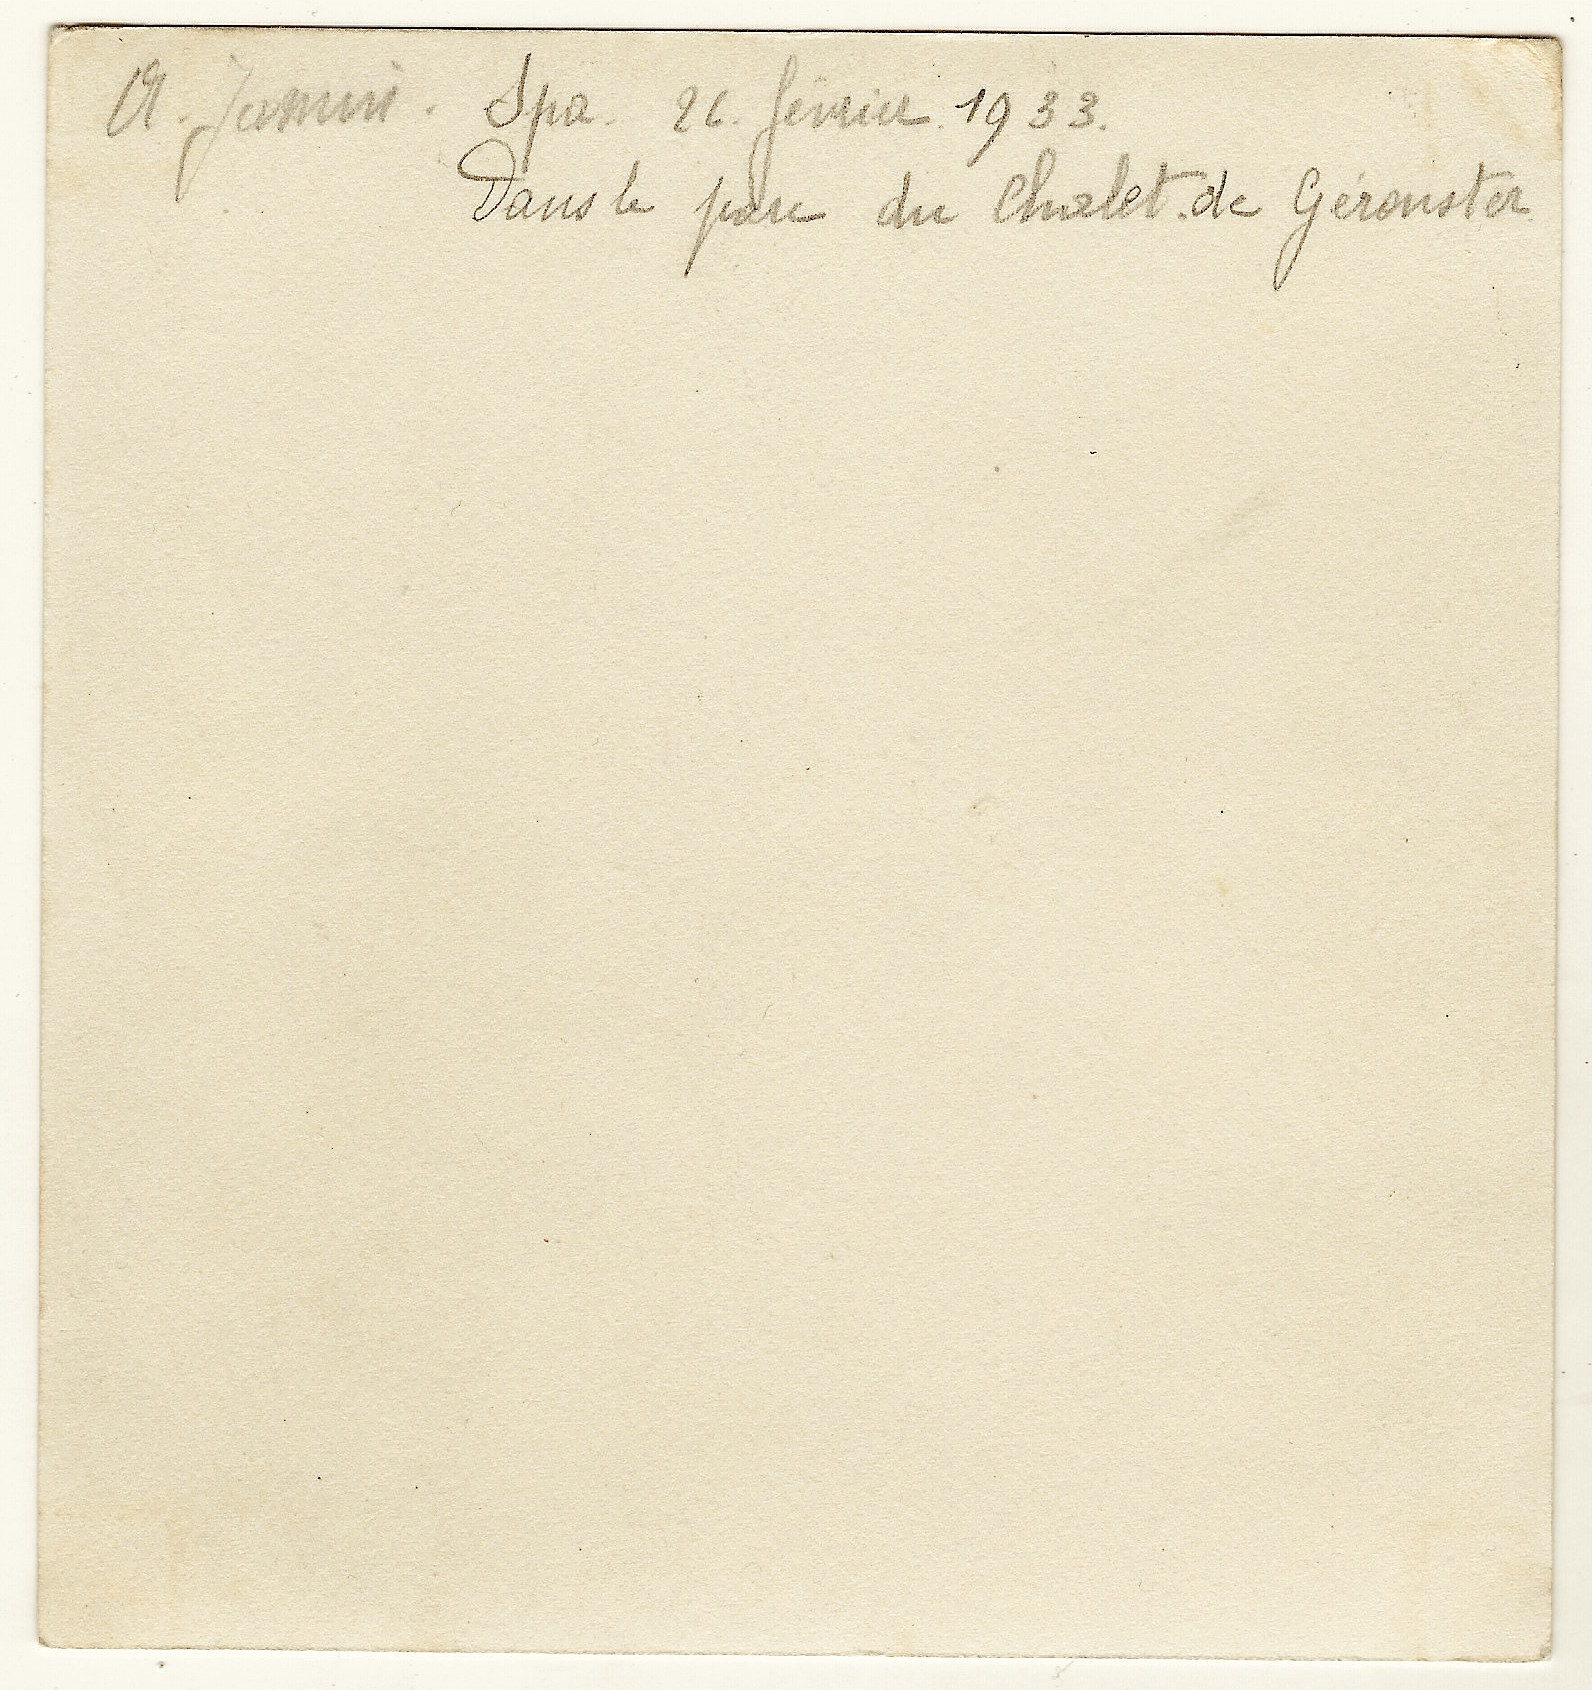 A. Jamin. Spa. 26. février. 1933.
Dans le parc du Chalet. de Géronster